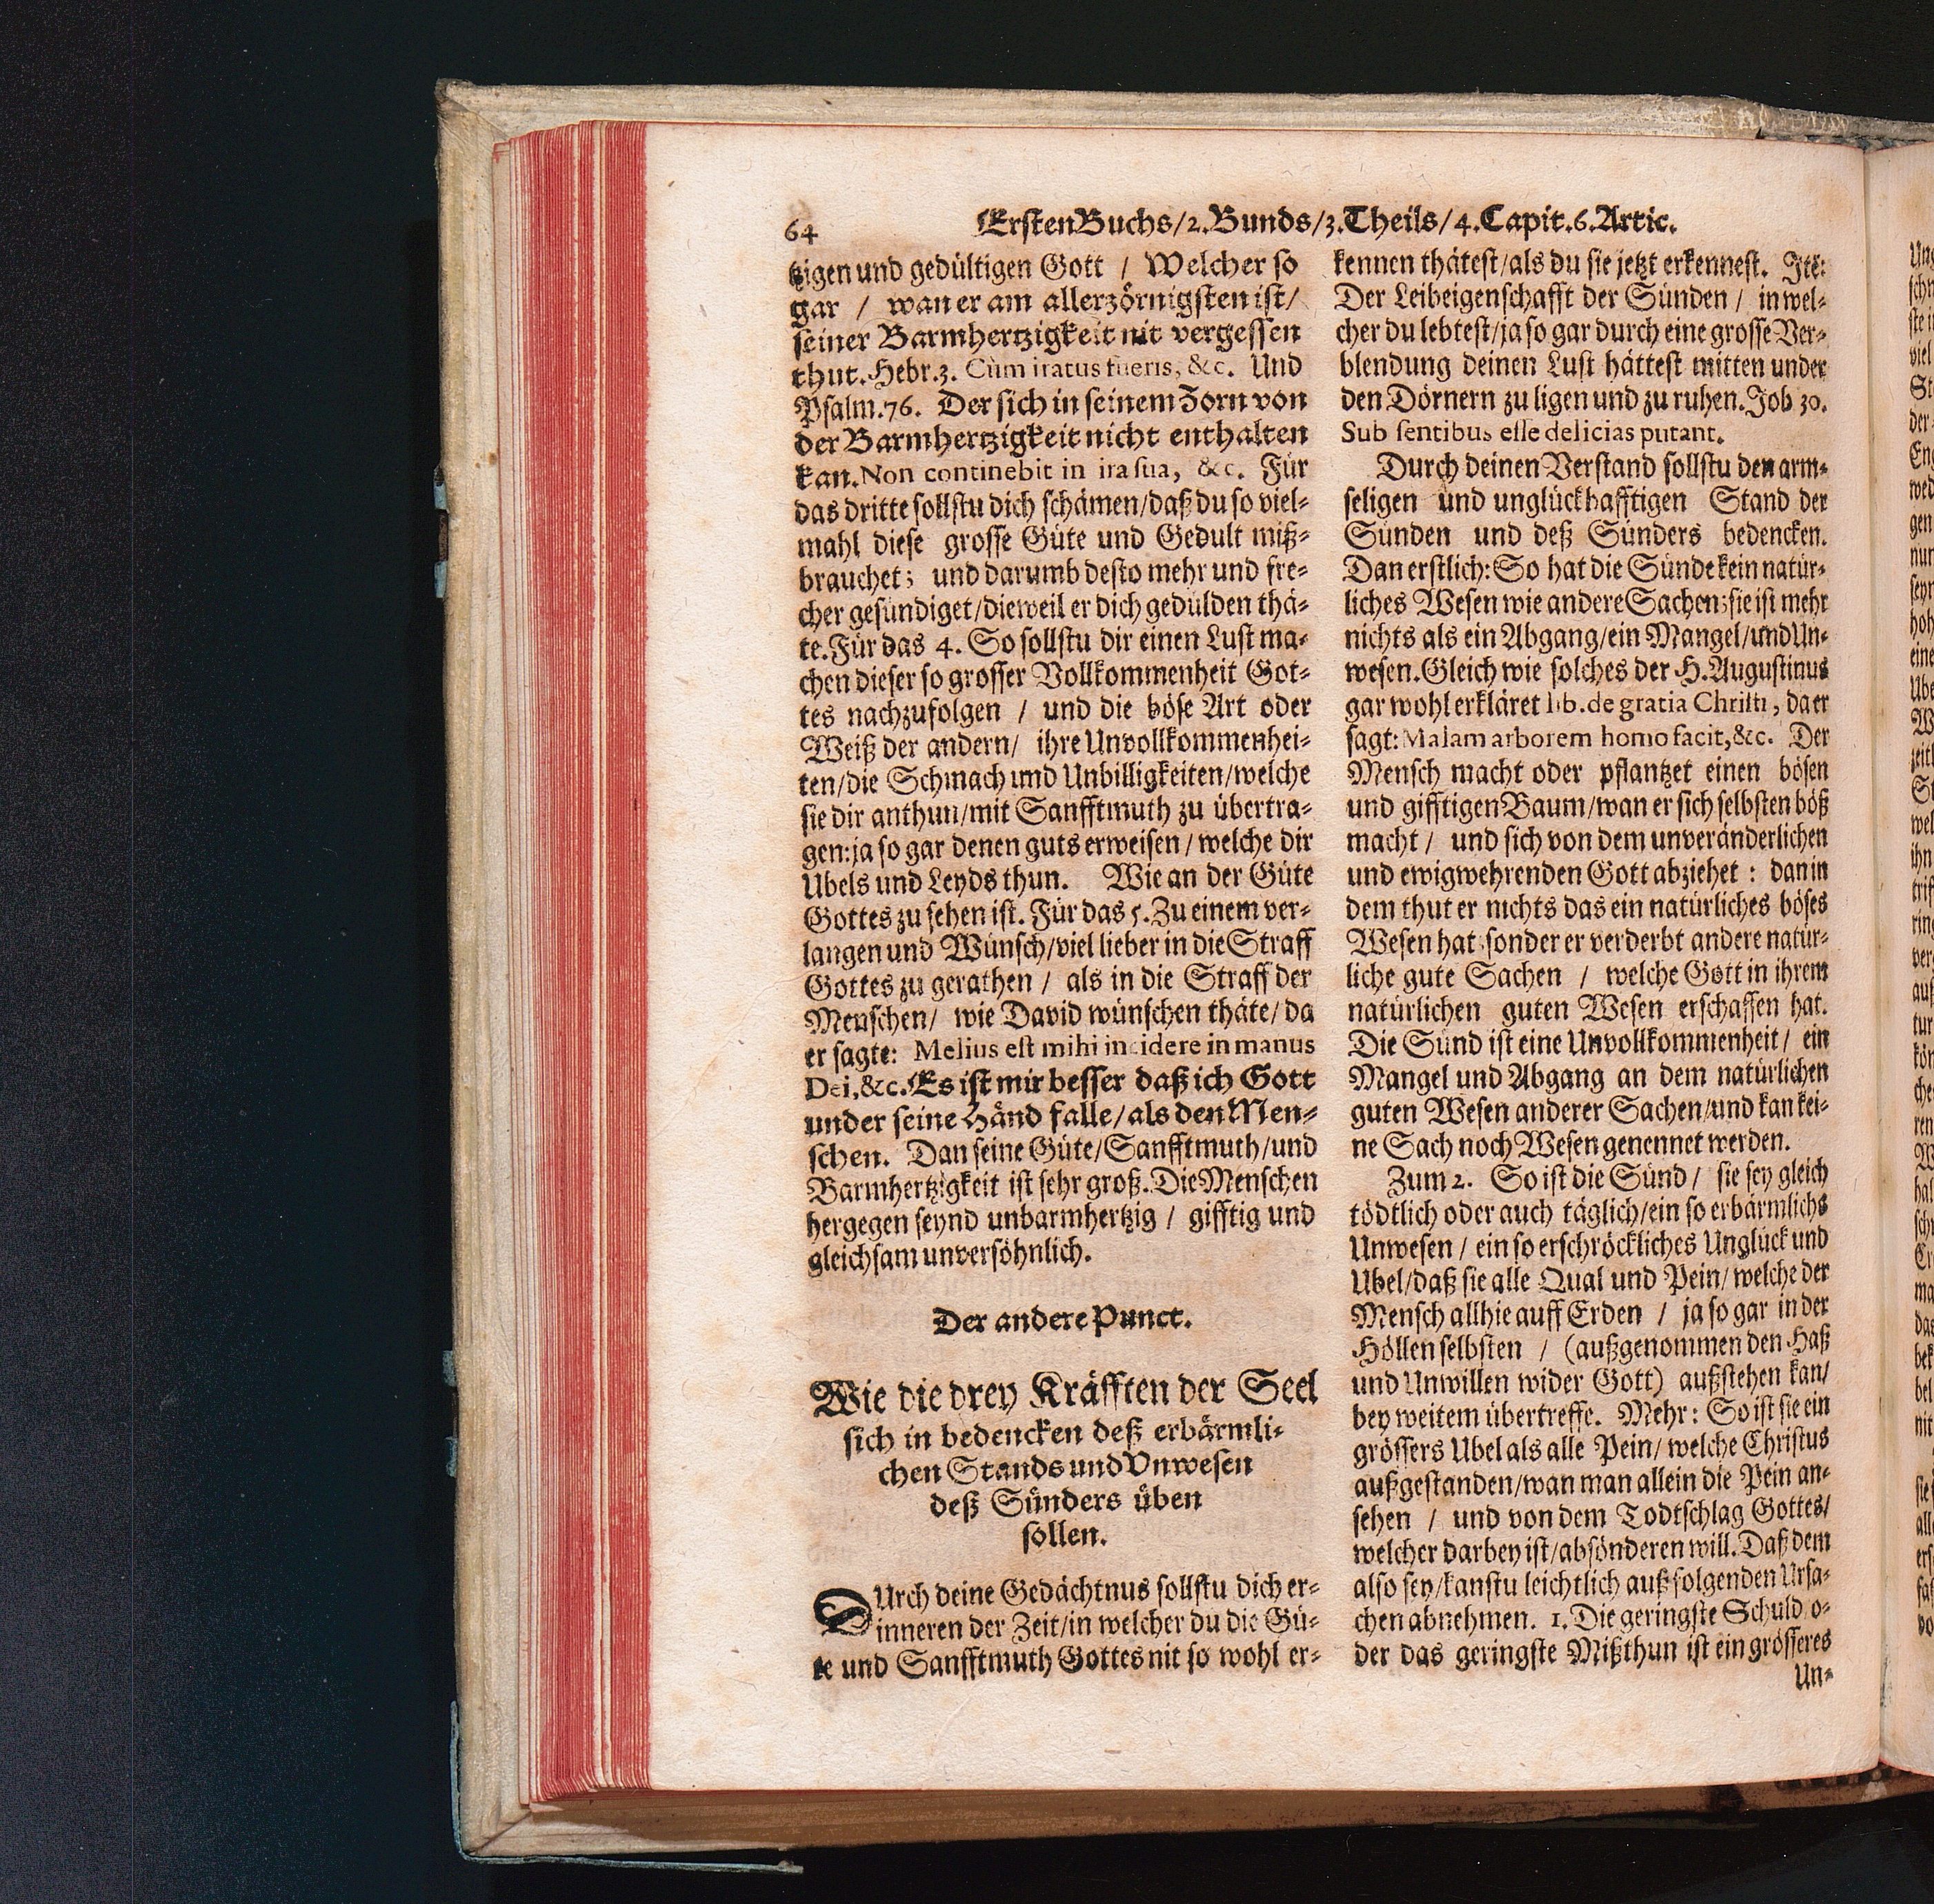 64
Ersten Buchs/2. Bunds/3. Theils/4. Capit. 6. Artic.
tzigen und gedültigen Gott / Welcher so
gar / wan er am allerzörnigsten ist/
seiner Barmhertzigkeit nit vergessen
thut. Hebr. 3. Cùm iratus fueris, &c. Und
Psalm. 76. Der sich in seinem Zorn von
der Barmhertzigkeit nicht enthalten
kan. Non continebit in ira sua, &c. Für
das dritte sollstu dich schämen/daß du so viel-
mahl diese grosse Güte und Gedult miß-
brauchet; und darumb desto mehr und fre-
cher gesündiget/dieweil er dich gedulden thä-
te. Für das 4. So sollstu dir einen Lust ma-
chen dieser so grosser Vollkommenheit Got-
tes nachzufolgen / und die böse Art oder
Weiß der andern/ ihre Unvollkommenhei-
ten/die Schmach und Unbilligkeiten/welche
sie dir anthun/mit Sanfftmuth zu übertra-
gen: ja so gar denen guts erweisen / welche dir
Ubels und Leyds thun. Wie an der Güte
Gottes zu sehen ist. Für das 5. Zu einem ver-
langen und Wunsch/viel lieber in die Straff
Gottes zu gerathen / als in die Straff der
Menschen/ wie David wünschen thäte/ da
er sagte: Melius est mihi incidere in manus
Dei, &c. Es ist mir besser daß ich Gott
under seine Händ falle/als den Men-
schen. Dan seine Güte/Sanfftmuth/und
Barmhertzigkeit ist sehr groß. Die Menschen
hergegen seynd unbarmhertzig / gifftig und
gleichsam unversöhnlich.
Der andere Punct.
Wie die drey Kräfften der Seel
sich in bedencken deß erbärmli-
chen Stands und Unwesen
deß Sünders üben
sollen.
DUrch deine Gedächtnus sollstu dich er-
inneren der Zeit/in welcher du die Gü-
te und Sanfftmuth Gottes nit so wohl er-
kennen thätest/als du sie jetzt erkennest. Itē:
Der Leibeigenschafft der Sünden / in wel-
cher du lebtest/ja so gar durch eine grosse Ver-
blendung deinen Lust hättest mitten under
den Dörnern zu ligen und zu ruhen. Job 30.
Sub sentibus esse delicias putant.
Durch deinen Verstand sollstu den arm-
seligen und unglückhafftigen Stand der
Sünden und deß Sünders bedencken.
Dan erstlich: So hat die Sünde kein natür-
liches Wesen wie andere Sachen; sie ist mehr
nichts als ein Abgang/ein Mangel/und Un-
wesen. Gleich wie solches der H. Augustinus
gar wohl erkläret lib. de gratia Christi, da er
sagt: Malam arborem homo facit, &c. Der
Mensch macht oder pflantzet einen bösen
und gifftigen Baum/wan er sich selbsten böß
macht / und sich von dem unveränderlichen
und ewigwehrenden Gott abziehet : dan in
dem thut er nichts das ein natürliches böses
Wesen hat; sonder er verderbt andere natür-
liche gute Sachen / welche Gott in ihrem
natürlichen guten Wesen erschaffen hat.
Die Sünd ist eine Unvollkommenheit / ein
Mangel und Abgang an dem natürlichen
guten Wesen anderer Sachen/und kan kei-
ne Sach noch Wesen genennet werden.
Zum 2. So ist die Sünd / sie sey gleich
tödtlich oder auch täglich/ein so erbärmlichs
Unwesen / ein so erschröckliches Unglück und
Ubel/daß sie alle Qual und Pein/ welche der
Mensch allhie auff Erden / ja so gar in der
Höllen selbsten / (außgenommen den Haß
und Unwillen wider Gott) außstehen kan/
bey weitem übertreffe. Mehr: So ist sie ein
grössers Ubel als alle Pein/ welche Christus
außgestanden/wan man allein die Pein an-
sehen / und von dem Todtschlag Gottes/
welcher darbey ist/absönderen will. Daß dem
also sey/kanstu leichtlich auß folgenden Ursa-
chen abnehmen. 1. Die geringste Schuld o-
der das geringste Mißthun ist ein grösseres
Un-